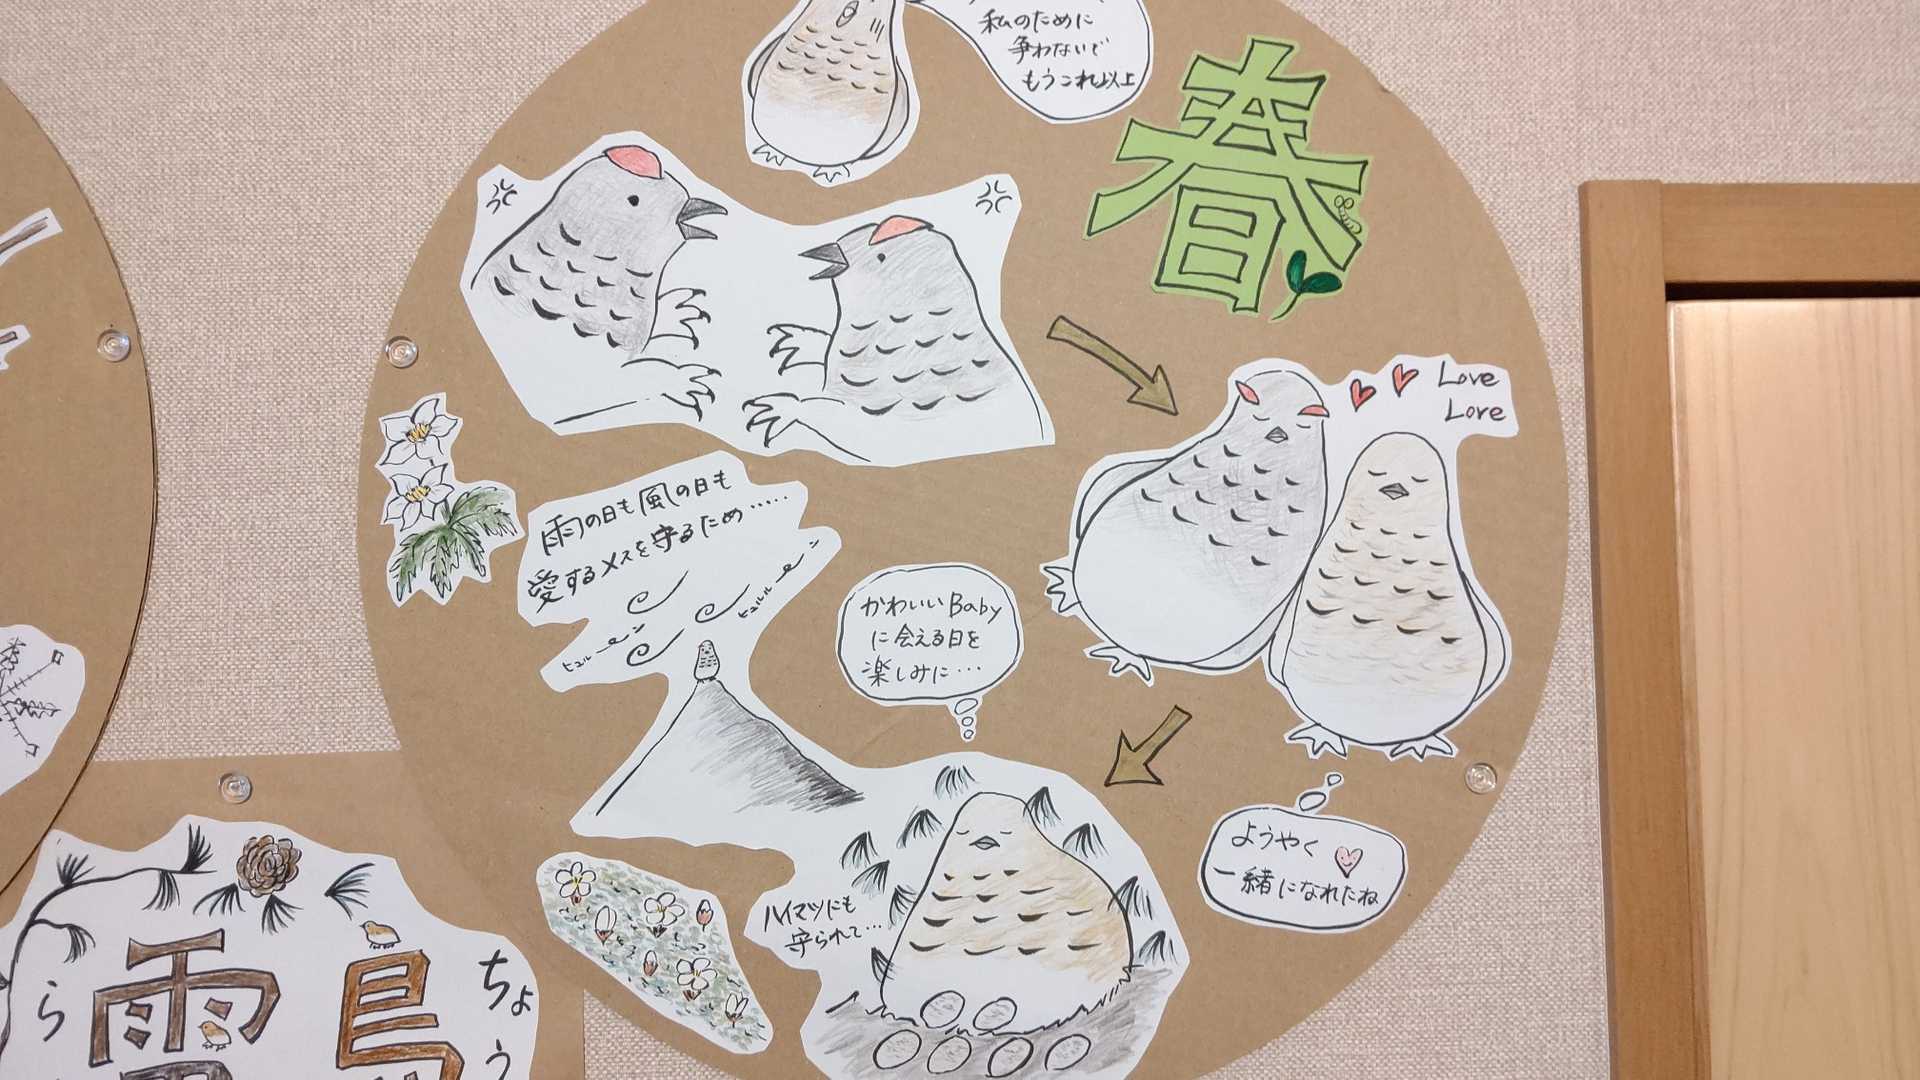 私のために
争わないで
もうこれ以上
春
Love
Love
雨の日も風の日も
愛するメスを守るため.....
ヒュルルー
ヒュルー
かわいいBaby
に会える日を
楽しみに...
ようやく
一緒になれたね
ハイマツにも
守られて...
雷鳥
ちょう
ら